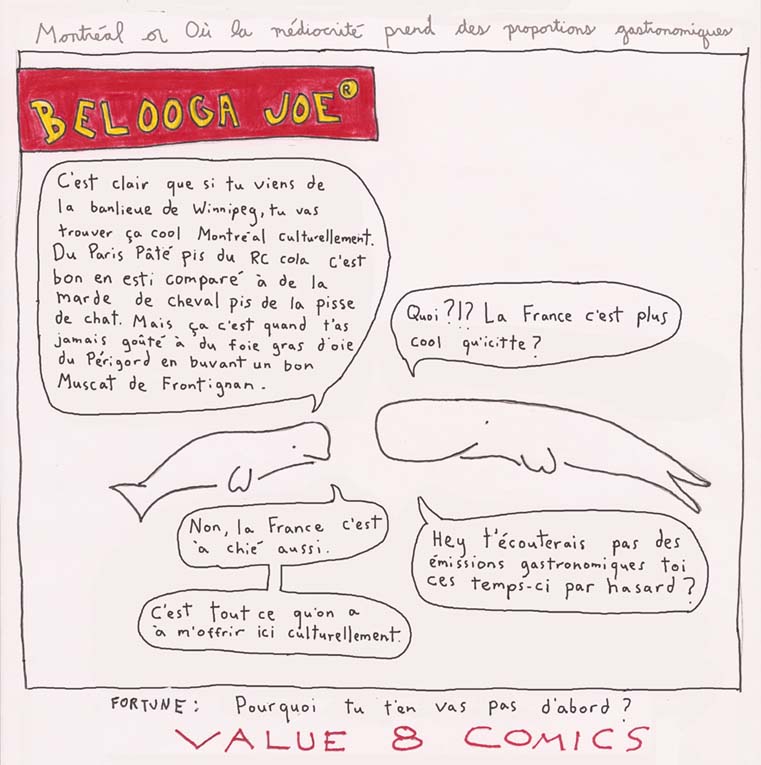 Montréal or Où la médiocrité prend des proportions gastronomiques
BELOOGA JOE®
C'est clair que si tu viens de
la banlieue de Winnipeg, tu vas
trouver ça cool Montréal culturellement.
Du Paris Pâté pis du RC cola c'est
bon en esti comparé à de la
marde de cheval pis de la pisse
de chat. Mais ça c'est quand t'as
jamais goûté à du foie gras d'oie
du Périgord en buvant un bon
Muscat de Frontignan.
Quoi?!? La France c'est plus
cool qu'icitte?
Non, la France c'est
à chié aussi.
C'est tout ce qu'on a
à m'offrir ici culturellement.
Hey t'écouterais pas des
émissions gastronomiques toi
ces temps-ci par hasard?
FORTUNE: Pourquoi tu t'en vas pas d'abord?
VALUE 8 COMICS